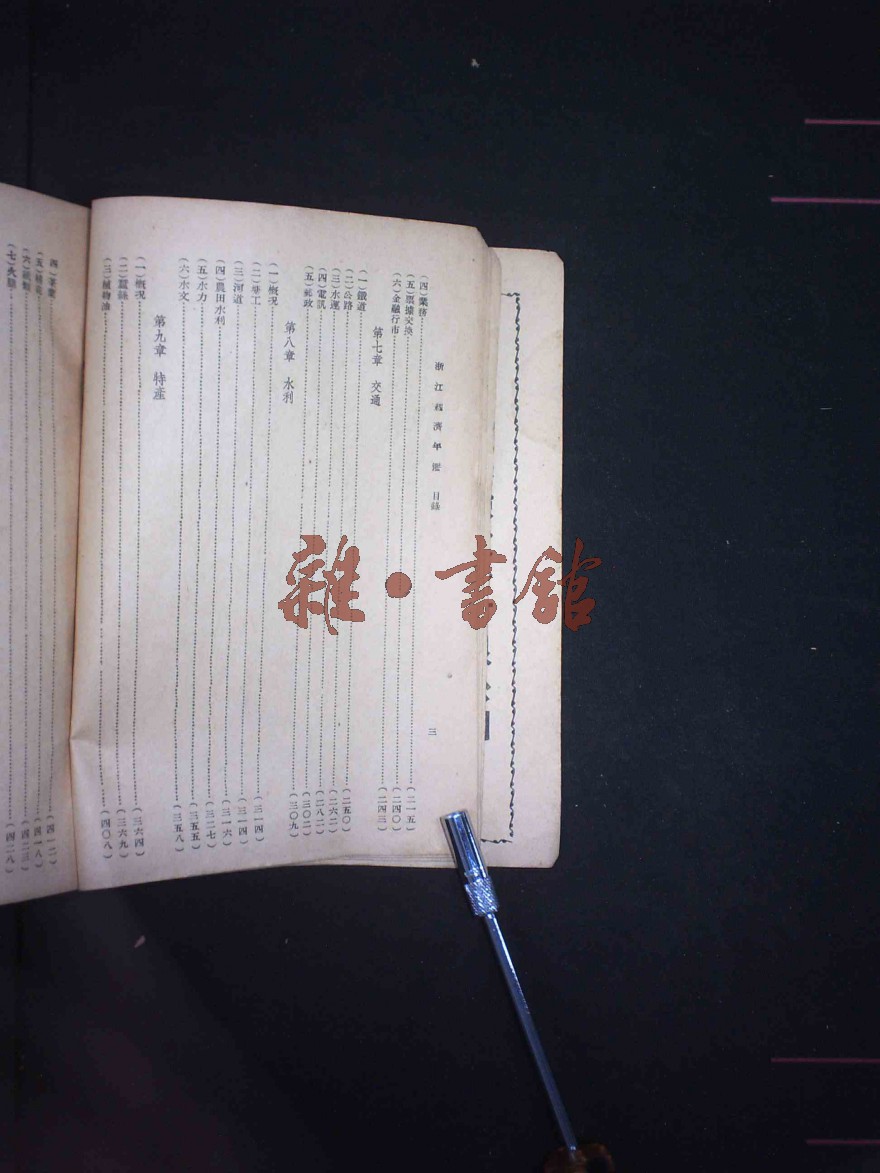 浙江經濟年鑑 目錄 三
(四)業務……(二一五)
(五)票據交換……(二四〇)
(六)金融行市……(二四三)
第七章 交通
(一)鐵道……(二五〇)
(二)公路……(二六二)
(三)水運……(二八二)
(四)電訊……(三〇二)
(五)郵政……(三〇九)
第八章 水利
(一)概况……(三一四)
(二)塘工……(三一四)
(三)河道……(三一六)
(四)農田水利……(三二七)
(五)水力……(三五五)
(六)水文……(三五八)
第九章 特產
(一)概况……(三六四)
(二)蠶絲……(三六九)
(三)植物油……(四〇八)
(四)茶葉……(四一二)
(五)……(四一八)
(六)……(四二三)
(七)火腿……(四二八)
雜·書館